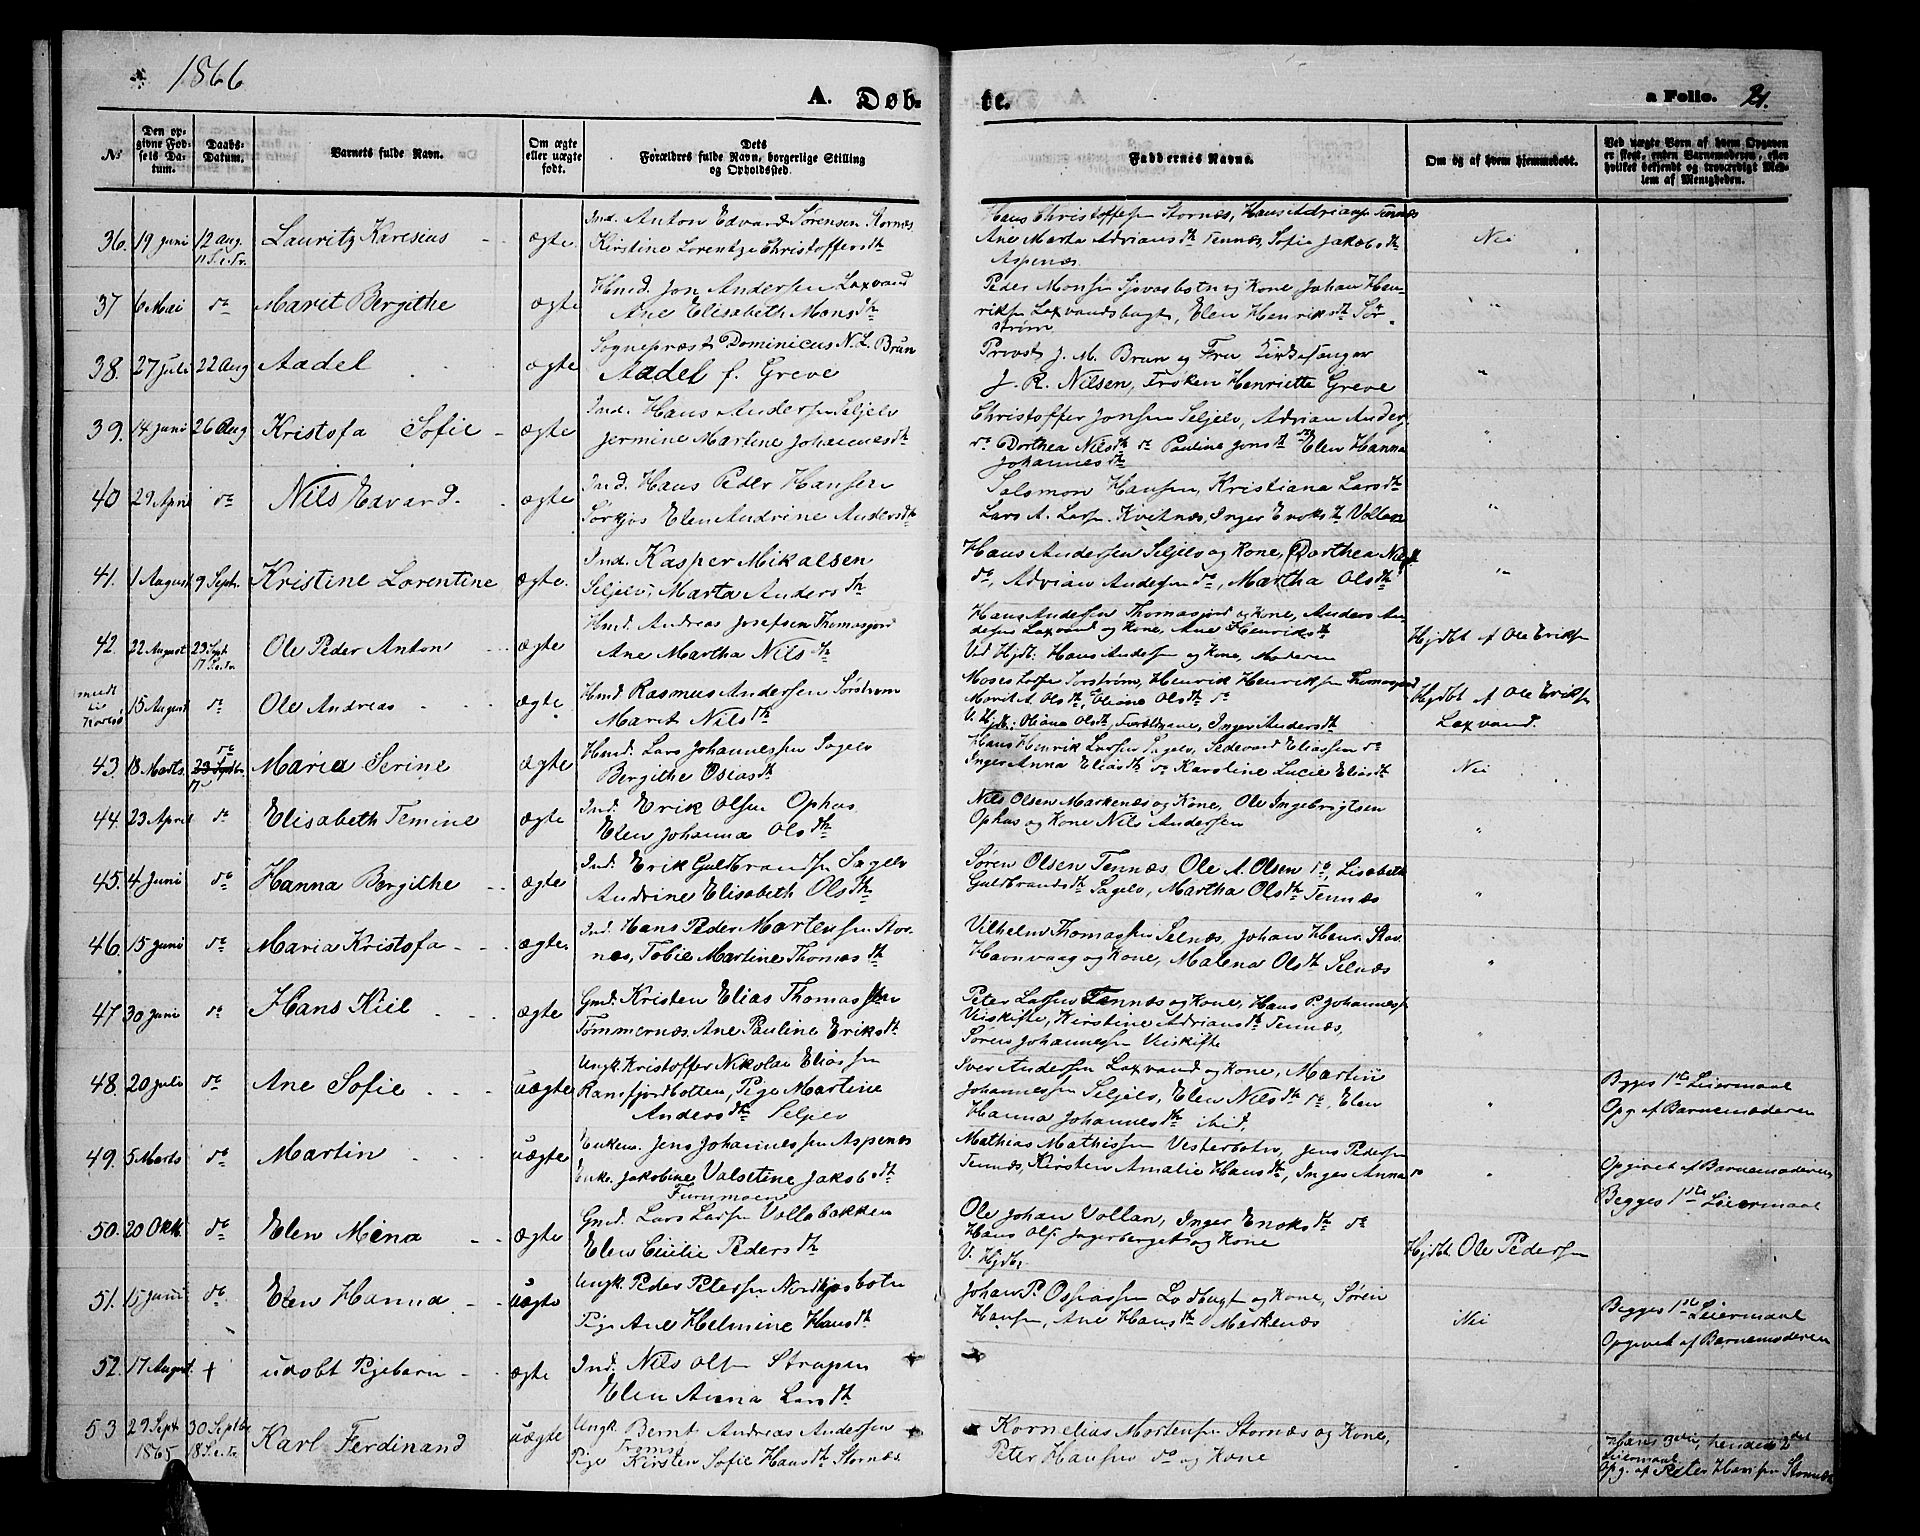 1866
A. Døb-
te.
a Folio. 21.
No
Den op-
givne Fød-
sels Da-
tum.
Daabs-
Datum.
Barnets fulde Navn.
Om ægte
eller uægte
født.
Dets
Forældres fulde Navn, borgerlige Stilling
og Opholdssted.
Faddernes Navne.
Om og af hvem hjemmedøbt.
Ved uægte Børn af hvem Opgaven
er skeet, enten Barnemoderen, eller
hvilket bekjendt og troværdigt Med-
lem af Menigheden.
36. 19 Juni 12 Aug. 11 S. e. Tr. Lauritz Karesius ægte
Ind. Anton Edvard Sørensen Stornæs
Kirstine Lorentze Christoffersdtr
Hans Christoffersen Stornæs, Hans Adrians. Tennæs
Ane Marta Adriansdtr Tennæs, Sofie Jakobsdtr
Aspenæs.
Nei
37 6 Mai do Marit Bergithe ægte
Hmd. Jon Andersen Laxvand
Ane Elisabeth Monsdtr
Peder Monsen Sjøvasbotn og Kone, Johan Hen-
riksen Laxvandsbugt, Elen Henriksdtr Sør-
strøm
"
38. 27 Juli 22 Aug Aadel ægte
Sognepræst Dominicus N. L. Brun
Aadel f. Greve
Provst J. M. Brun og Fru Kirkesanger
J. R. Nilsen, Frøken Henriette Greve
"
39. 14 Juni 26 Aug Kristofa Sofie ægte
Ind. Hans Andersen Seljelv
Jermine Martine Johannesdtr
Christoffer Jonsen Seljelv, Adrian Anders.
do Dorthea Nilsdtr do Pauline Jonsdtr do Elen Hanna
Johannesdtr
"
40 29 April do Nils Edvard. ægte
Ind. Hans Peder Hansen
Sørkjos Elen Andrine Andersdtr
Salomon Hansen, Kristiana Larsdtr
Lars A. Larsen Kvitnæs, Inger Enoksdtr Vollan
"
41. 1 August 9 Septr. Kristine Lorentine ægte.
Ind. Kasper Mikalsen
Seljelv, Marta Andersdtr
Hans Andersen Seljelv og Kone, Dorthea Nilsdtr
do, Adrian Andersen do, Martha Olsdtr
"
42. 22 August 23 Sept. 17 S. e. Tr. Ole Peder Anton ægte
Hmd. Andreas Josefsen Thomasjord
Ane Martha Nilsdtr
Hans Andersen Thomasjord og Kone, Anders An-
dersen Laxvand og Kone, Ane Henriksdtr
Ved Hjdt: Hans Andersen og Kone, Moderen
Hjdbt af Ole Eriksen
15 August do Ole Andreas ægte
Hmd Rasmus Andersen Sørstrøm
Marit Nilsdtr
Moses Larsen Sørstrøm, Henrik Henriksen Thomasjord
Marit A. Olsdtr, Eliana Olsdtr do
V. Hjdt: Oliana Olsdtr, Forældrene, Inger Andersdtr
Hjdbt af Ole Eriksen
Laxvand.
43. 18 Marts. 23 Septbr. do Maria Serine ægte
Hmd. Lars Johannessen Sagelv
Bergithe Osiasdtr
Hans Henrik Larsen Sagelv, Sedevard Eliassen do
Inger Anna Eliasdtr do Karoline Lucie Eliasdtr
Nei
44. 23 April do Elisabeth Temine ægte
Ind. Erik Olsen Ophus
Elen Johanna Olsdtr
Nils Olsen Markenæs og Kone, Ole Ingebrigtsen
Ophus og Kone Nils Andersen
"
45. 4 Juni do Hanna Bergithe ægte
Ind. Erik Guldbrandsen Sagelv
Andrine Elisabeth Olsdtr
Søren Olsen Tennæs, Ole A. Olsen do, Lisabeth
Guldbrandsdtr Sagelv, Martha Olsdtr Tennæs
"
46. 15 Juni do Maria Kristofa ægte.
Ind. Hans Peder Martensen Stor-
næs, Tobie Martine Thomasdtr
Vilhelm Thomassen Selnæs, Johan Henr.
Havnvaag og Kone, Malena Olsdtr Selnæs
"
47 30 Juni do Hans Kiil ægte
Gmd. Kristen Elias Thomassen
Tømmernæs. Ane Pauline Eriksdtr
Peter Larsen Tennæs og Kone, Hans P. Johannesen
Veiskifte, Kirstine Adriansdtr Tennæs,
Søren Johannessen Veiskifte
"
48. 20 Juli do Ane Sofie uægte
Ungk. Kristoffer Nikolai Eliassen
Ramfjordbotten, Pige Martine
Andersdtr Seljelv
Iver Andersen Laxvand og Kone, Martin
Johannessen Seljelv, Elen Nilsdtr do, Elen
Hanna Johannesdtr ibid.
"
Begges 1ste Leiermaal
Opg. af Barnemoderen
49. 5 Marts do Martin uægte
Enkem. Jens Johannessen Aspenæs
Enke. Jakobine Valsetine Jakobsdtr
Furumoen
Mathias Mathissen Vesterbotn, Jens Pedersen
Tennæs, Kirsten Amalie Hansdtr, Inger Anna do
"
Opgivet af Barnemoderen
Begges 1ste Leiermaal
50. 20 Okt. do Elen Mina ægte
Gmd. Lars Larsen Vollabakken
Elen Cecilie Pedersdtr
Ole Johan Vollan, Inger Enoksdtr do
Hans Ols. Jægerberget og Kone
V. Hjdb:
Hjdbt Ole Pedersen
51. 15 Juni do Elen Hanna uægte
Ungk. Peder Petersen Nordkjosbotn
Pige Ane Helmine Hansdtr
Johan P. Ossiassen Lodbugt og Kone, Søren
Hansen, Ane Hansdtr Markenæs
Nei
Begges 1ste Leiermaal
Opgivet af Barnemoderen
52. 17 August. + udøbt Pigebarn ægte
Ind. Nils Olsen Strupen
Elen Anna Larsdtr
53 29 Sept 1865 30 Septbr 18 S. e. Tr. Karl Ferdinand uægte
Ungk. Bernt Andreas Andersen
Tromsø
Pige Kirsten Sofie Hansdtr Stornæs.
Kornelias Mortensen Stornæs og Kone,
Peter Hansen do og Kone
Hans 3die, hendes 2det
Leiermaal
Opg. af Peter Hansen Stornæs